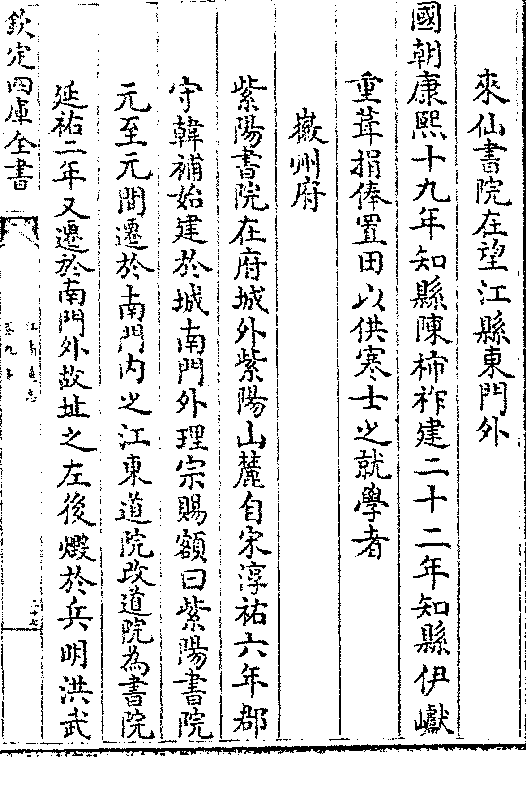 來仙書院在望江縣東門外
國朝康熙十九年知縣陳柿祚建二十二年知縣伊巘
重葺捐俸置田以供寒士之就學者
徽州府
紫陽書院在府城外紫陽山麓自宋淳祐六年郡
守韓補始建於城南門外理宗賜額曰紫陽書院
元至元間遷於南門内之江東道院改道院為書院
延祐二年又遷於南門外故址之左後燬於兵明洪武
欽定四庫全書